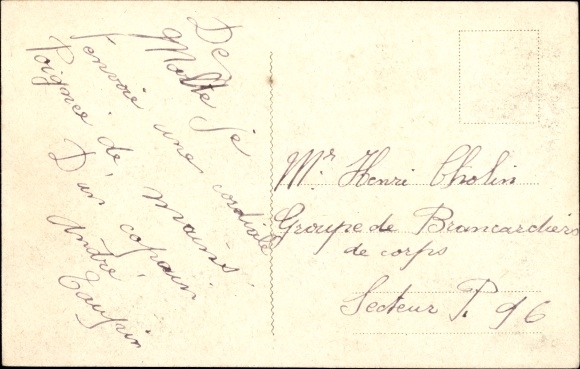 De
Melle Je
t'envoie une cordiale
Poignée de mains
D'un copain
André
Taupin
Mr Henri Cholin
Groupe de Brancardiers
de corps
Secteur P. 96